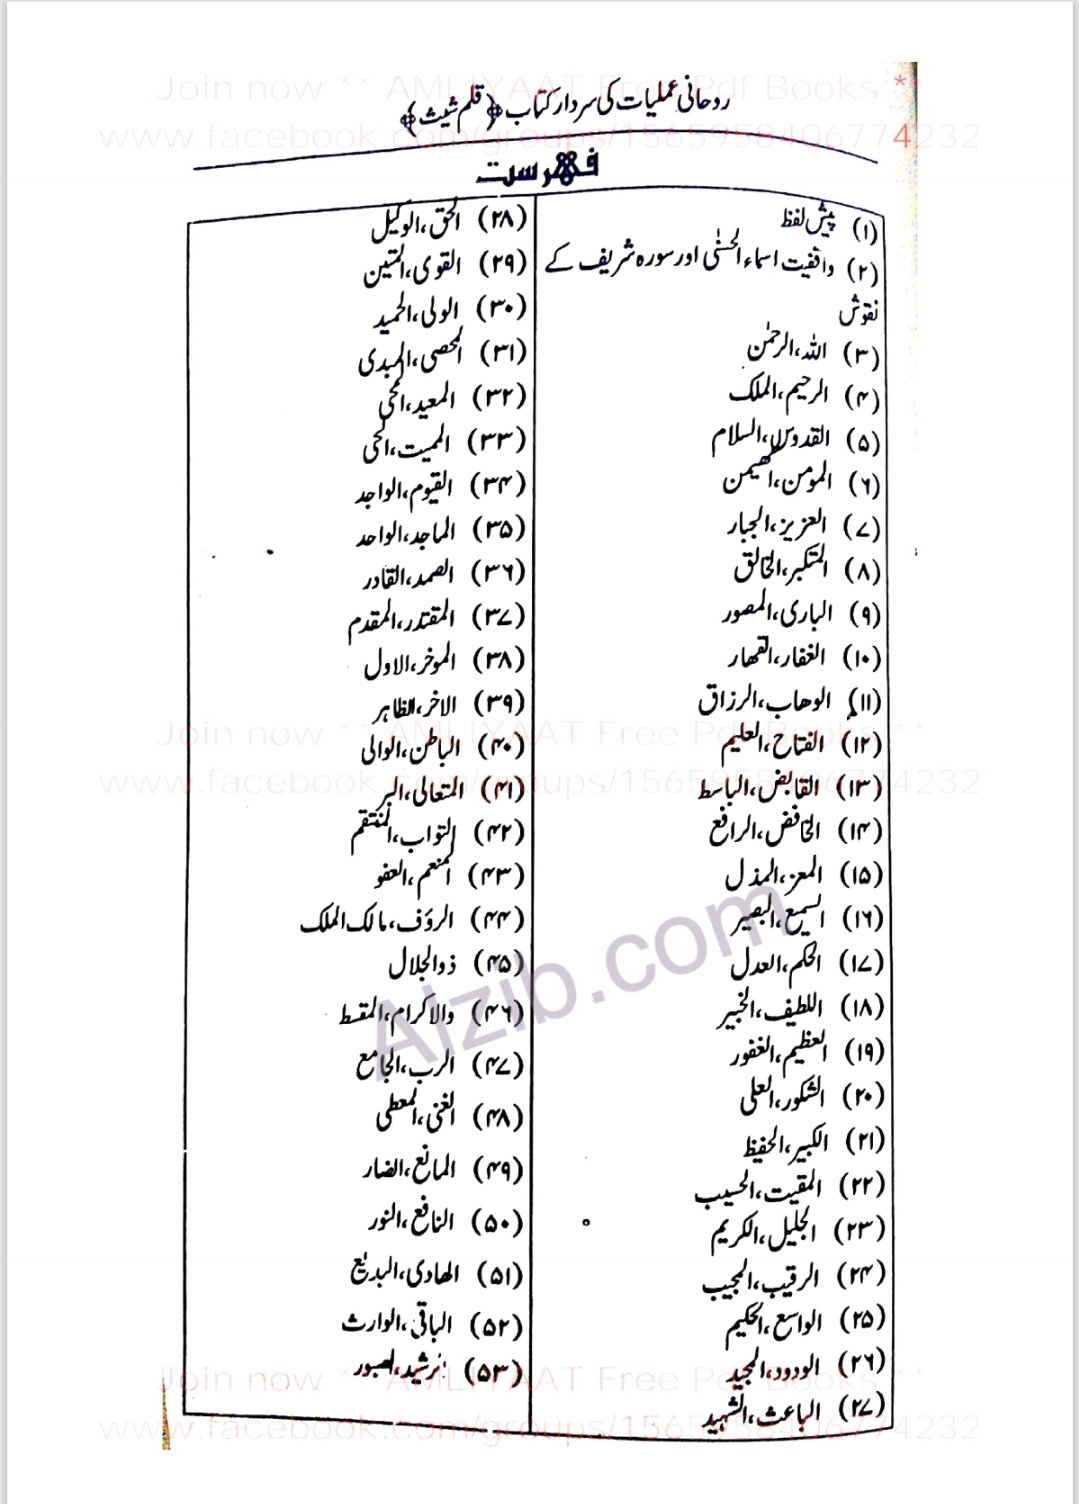 Join now ** AMLIYAAT Free Pdf Books **
www.facebook.com/groups/1565958406774232
روحانی عملیات کی سردار کتاب ﴿قلم شیث﴾
فہرست
(۱) پیش لفظ
(۲) واقفیت اسماء الحسنٰی اور سورہ شریف کے
نقوش
(۳) اللہ، الرحمٰن
(۴) الرحیم، الملک
(۵) القدوس، السلام
(۶) المومن، المھیمن
(۷) العزیز، الجبار
(۸) المتکبر، الخالق
(۹) الباری، المصور
(۱۰) الغفار، القھار
(۱۱) الوھاب، الرزاق
(۱۲) الفتاح، العلیم
(۱۳) القابض، الباسط
(۱۴) الخافض، الرافع
(۱۵) المعز، المذل
(۱۶) السمیع، البصیر
(۱۷) الحکم، العدل
(۱۸) اللطیف، الخبیر
(۱۹) العظیم، الغفور
(۲۰) الشکور، العلی
(۲۱) الکبیر، الحفیظ
(۲۲) المقیت، الحسیب
(۲۳) الجلیل، الکریم
(۲۴) الرقیب، المجیب
(۲۵) الواسع، الحکیم
(۲۶) الودود، المجید
(۲۷) الباعث، الشہید
(۲۸) الحق، الوکیل
(۲۹) القوی، المتین
(۳۰) الولی، الحمید
(۳۱) المحصی، المبدی
(۳۲) المعید، المحی
(۳۳) الممیت، الحی
(۳۴) القیوم، الواجد
(۳۵) الماجد، الواحد
(۳۶) الصمد، القادر
(۳۷) المقتدر، المقدم
(۳۸) الموخر، الاول
(۳۹) الاخر، الظاہر
(۴۰) الباطن، الوالی
(۴۱) المتعالی، البر
(۴۲) التواب، المنتقم
(۴۳) المنعم، العفو
(۴۴) الرؤف، مالک الملک
(۴۵) ذوالجلال
(۴۶) والاکرام، المقسط
(۴۷) الرب، الجامع
(۴۸) الغنی، المعطی
(۴۹) المانع، الضار
(۵۰) النافع، النور
(۵۱) الھادی، البدیع
(۵۲) الباقی، الوارث
(۵۳) الرشید، الصبور
Join now ** AMLIYAAT Free Pdf Books **
www.facebook.com/groups/1565958406774232
Aizib.com
Join now ** AMLIYAAT Free Pdf Books **
www.facebook.com/groups/1565958406774232